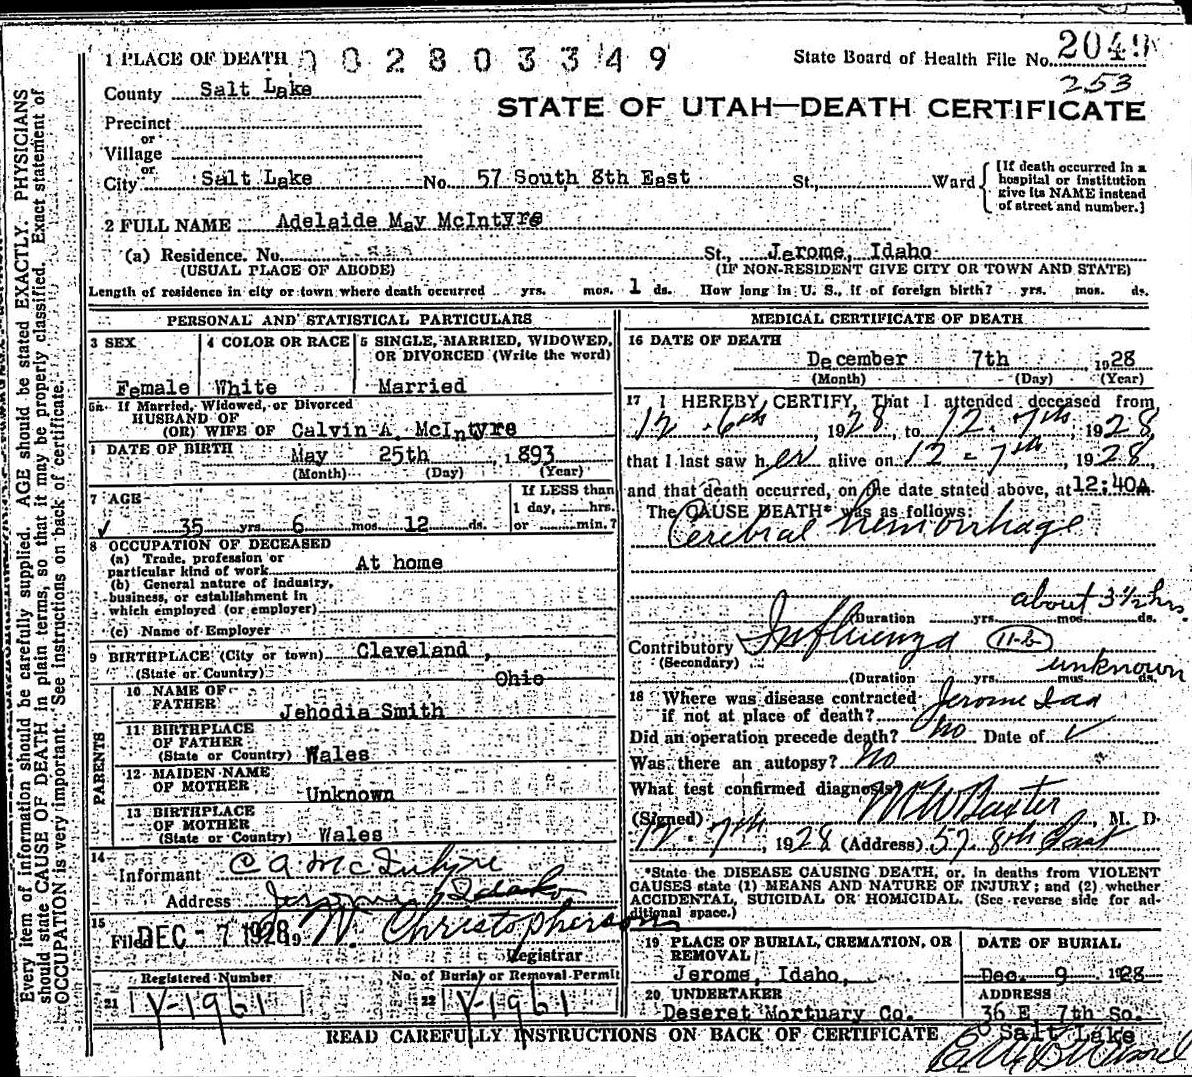 1 PLACE OF DEATH 002803349 State Board of Health File No. 2049
253
County Salt Lake
STATE OF UTAH—DEATH CERTIFICATE
Precinct
or
Village
or
City Salt Lake No. 57 South 8th East St., Ward
[If death occurred in a
hospital or institution
give its NAME instead
of street and number.]
2 FULL NAME Adelaide May McIntyre
(a) Residence. No. St., Jerome, Idaho
(USUAL PLACE OF ABODE) (IF NON-RESIDENT GIVE CITY OR TOWN AND STATE)
Length of residence in city or town where death occurred yrs. mos. 1 ds. How long in U. S., if of foreign birth? yrs. mos. ds.
PERSONAL AND STATISTICAL PARTICULARS
3 SEX
Female
4 COLOR OR RACE
White
5 SINGLE, MARRIED, WIDOWED,
OR DIVORCED (Write the word)
Married
5a If Married, Widowed, or Divorced
HUSBAND OF
(OR) WIFE OF Calvin A. McIntyre
DATE OF BIRTH May 25th, 1893
(Month) (Day) (Year)
7 AGE
35 yrs. 6 mos. 12 ds.
If LESS than
1 day, hrs.
or min.?
8 OCCUPATION OF DECEASED
(a) Trade, profession or
particular kind of work At home
(b) General nature of industry,
business, or establishment in
which employed (or employer)
(c) Name of Employer
9 BIRTHPLACE (City or town) Cleveland,
(State or Country) Ohio
PARENTS
10 NAME OF
FATHER Jehodia Smith
11 BIRTHPLACE
OF FATHER
(State or Country) Wales
12 MAIDEN NAME
OF MOTHER Unknown
13 BIRTHPLACE
OF MOTHER
(State or Country) Wales
14
Informant C A McIntyre
Address Jerome Idaho
15
Filed DEC - 7 1928 19 W. Christopherson
Registrar
Registered Number No. of Burial or Removal Permit
21 Y-1961 22 Y-1961
MEDICAL CERTIFICATE OF DEATH
16 DATE OF DEATH
December 7th, 1928
(Month) (Day) (Year)
17 I HEREBY CERTIFY, That I attended deceased from
12-6th, 1928, to 12-7th, 1928,
that I last saw her alive on 12-7th, 1928,
and that death occurred, on the date stated above, at 12:40A
The CAUSE DEATH* was as follows:
Cerebral hemorrhage
about 3½ hrs
(Duration yrs. mos. ds.
Contributory Influenza 11-b
(Secondary)
unknown
(Duration yrs. mos. ds.
18 Where was disease contracted
if not at place of death? Jerome Ida
Did an operation precede death? No Date of
Was there an autopsy? No
What test confirmed diagnosis?
(Signed) M W Baxter, M. D.
12-7th, 1928 (Address) 57. 8th East
*State the DISEASE CAUSING DEATH, or, in deaths from VIOLENT
CAUSES state (1) MEANS AND NATURE OF INJURY; and (2) whether
ACCIDENTAL, SUICIDAL OR HOMICIDAL. (See reverse side for ad-
ditional space.)
19 PLACE OF BURIAL, CREMATION, OR
REMOVAL
Jerome, Idaho,
DATE OF BURIAL
Dec. 9 1928
20 UNDERTAKER
Deseret Mortuary Co.
ADDRESS
36 E. 7th So.
Salt Lake
READ CAREFULLY INSTRUCTIONS ON BACK OF CERTIFICATE
Every item of information should be carefully supplied. AGE should be stated EXACTLY. PHYSICIANS
should state CAUSE OF DEATH in plain terms, so that it may be properly classified. Exact statement of
OCCUPATION is very important. See instructions on back of certificate.